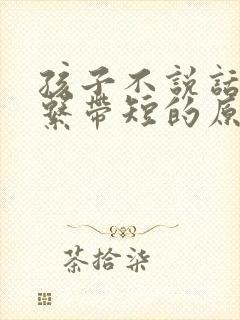 孩子不説話
繫帶短的原
茶拾柒